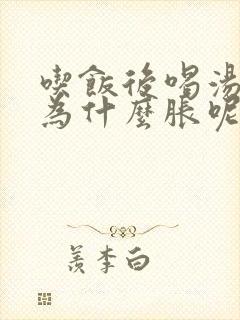 喫飯後喝湯
為什麼脹呢
羨李白